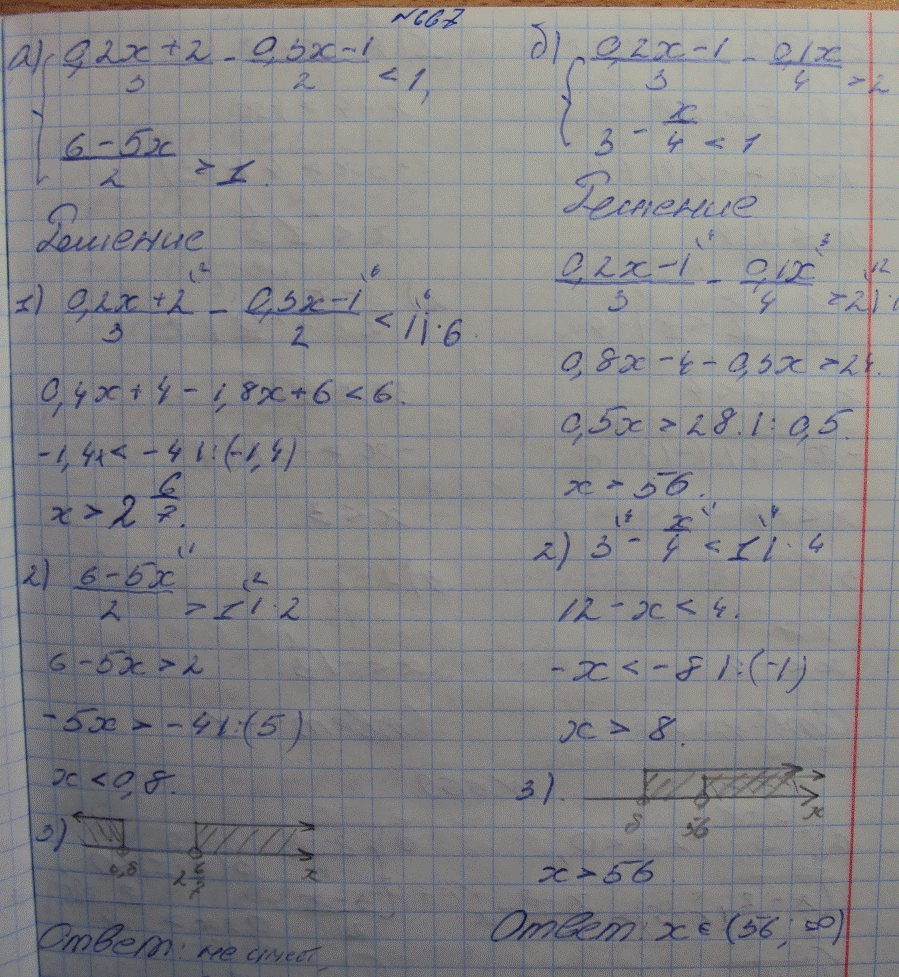 №667
а) { (0,2x+2)/3 - (0,3x-1)/2 < 1,
(6-5x)/2 > 1.
Решение
1) (0,2x+2)/3 - (0,3x-1)/2 < 1 |·6.
0,4x+4-1,8x+6<6.
-1,4x<-4 |:(-1,4)
x>2 6/7.
2) (6-5x)/2 > 1 |·2
6-5x>2
-5x>-4 |:(5)
x<0,8.
3) 0,8 2 6/7 x
Ответ: не имеет,
б) { (0,2x-1)/3 - (0,1x)/4 > 2
3 - x/4 < 1
Решение
(0,2x-1)/3 - (0,1x)/4 > 2 |·12
0,8x-4-0,3x>24.
0,5x>28. |:0,5.
x>56.
2) 3 - x/4 < 1 |·4
12-x<4.
-x<-8 |:(-1)
x>8.
3). 8 56 x
x>56
Ответ: x∈(56; ∞)